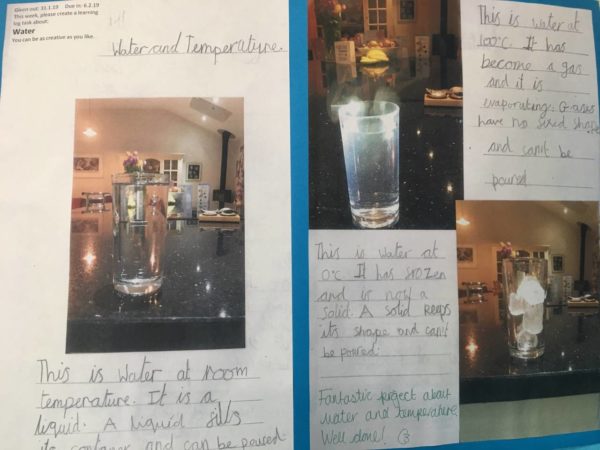 Given out: 31.1.19 Due in: 6.2.19
This week, please create a learning
log task about:
Water
You can be as creative as you like.
Water and Temperature.
This is water at room
temperature. It is a
liquid. A liquid fills
its container and can be poured
This is water at
100°C It has
become a gas
and it is
evaporating. Gases
have no fixed shape
and can't be
poured
This is water at
0°C It has frozen
and is now a
solid. A solid keeps
its shape and can't
be poured.
Fantastic project about
water and temperature.
Well done!